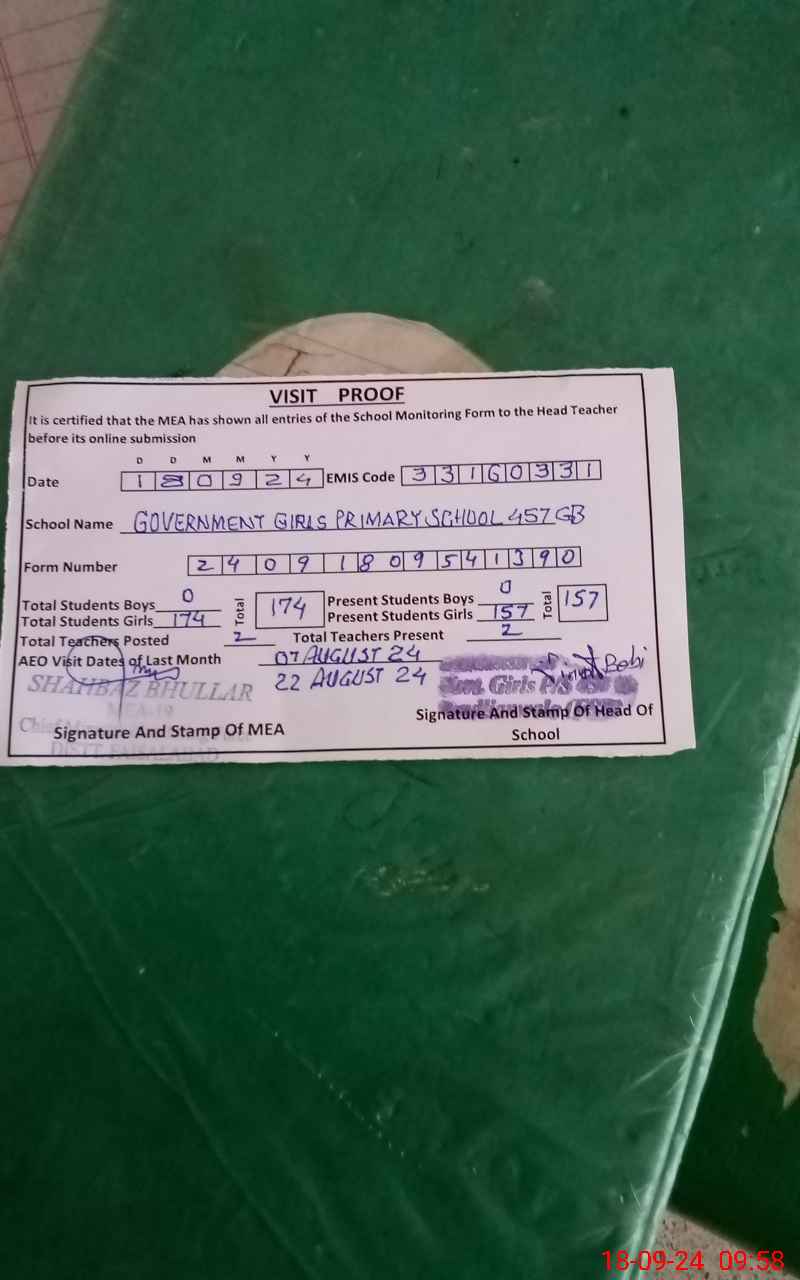 VISIT PROOF
It is certified that the MEA has shown all entries of the School Monitoring Form to the Head Teacher
before its online submission
D D M M Y Y
Date 1 8 0 9 2 4 EMIS Code 3 3 1 6 0 3 3 1
School Name GOVERNMENT GIRLS PRIMARY SCHOOL 457 GB
Form Number 2 4 0 9 1 8 0 9 5 4 1 3 9 0
Total Students Boys 0 Total 174 Present Students Boys 0 Total 157
Total Students Girls 174 Present Students Girls 157
Total Teachers Posted 2 Total Teachers Present 2
AEO Visit Dates of Last Month 07 AUGUST 24
22 AUGUST 24
Bebi
SHAHBAZ BHULLAR
Govt. Girls P/S
MEA-19
Signature And Stamp Of MEA
Signature And Stamp Of Head Of
School
DISTT. FAISALABAD
18-09-24 09:58